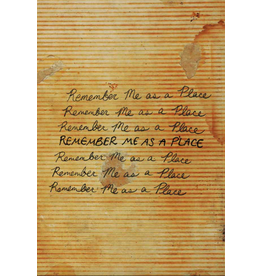 Remember Me as a Place
Remember Me as a Place
Remember Me as a Place
REMEMBER ME AS A PLACE
Remember Me as a Place
Remember Me as a Place
Remember Me as a Place